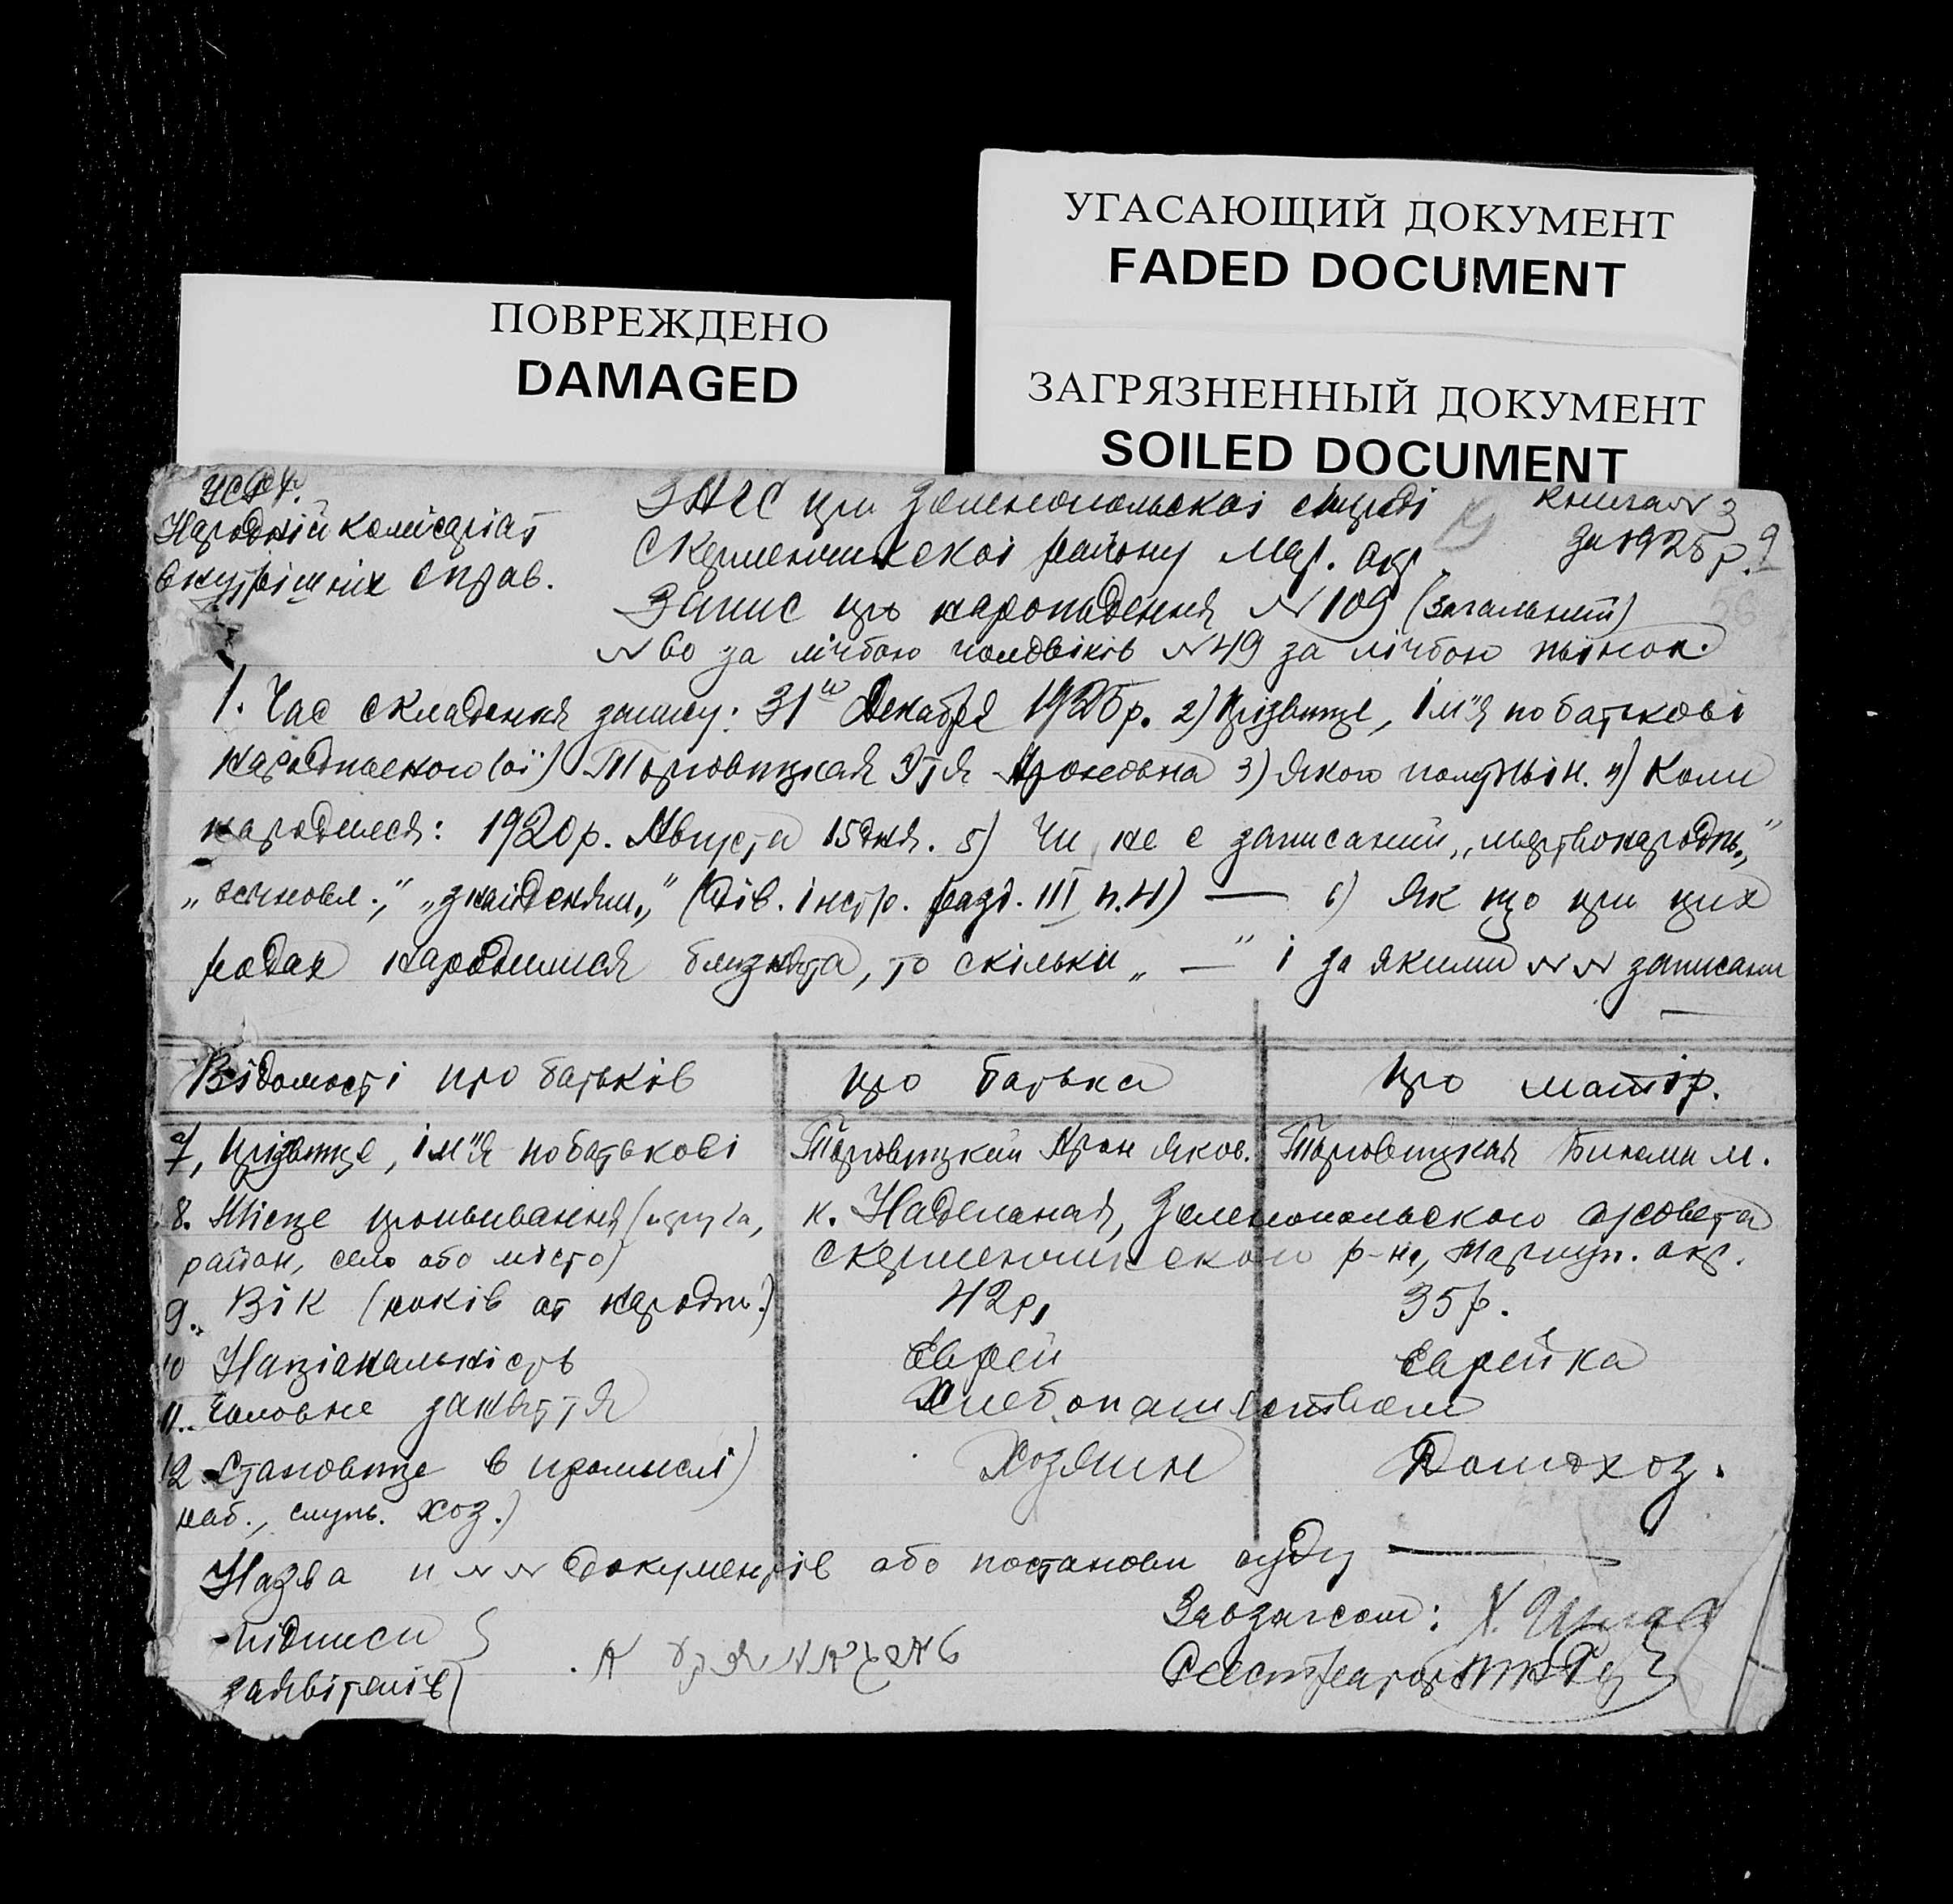 УГАСАЮЩИЙ ДОКУМЕНТ
FADED DOCUMENT
ПОВРЕЖДЕНО
DAMAGED
ЗАГРЯЗНЕННЫЙ ДОКУМЕНТ
SOILED DOCUMENT
Народній комісаріат
внутрішніх справ.
ЗАГС при Зеленопольскоі
району Мар. окр.
Книга № 3
за 192 р.
Запис про народження № 109 (загальний)
№ 60 за лічбою чоловіків № 49 за лічбою жінок.
1. Час складення запису: 31го Декабря 192 р. 2) Прізвище, ім"я по батькові
народженого (оі) Торговицкая Этя Ароновна 3) якого полу жін. 4) Коли
народився: 1920 р. Августа 15 дня. 5) Чи не є записаний „мертвонародж.„"
(Див. інстр. разд. III п. 4) — 6) Як що при цих
родах народилися близнята, то скільки „ — " і за якими № № записани
Відомості про батьків
про батька
про матір.
7, прізвище, ім"я по батькові
Торговицкий Арон Яков.
Торговицкая М.
8. Місце проживання (округа,
район, село або місто)
к. Надежная, Зеленопольского
р-на, Мариуп. окр.
9. Вік (років от народж.)
42 р,
35 р.
10 Національність
Еврей
Еврейка
11. Головне заняття
Хлебопашеством
12 Становище в промыслі
раб., служ. хоз.)
Хозяин
Домохоз.
Назва и № № документів або постанови суду —
підписи
заявітелів
Завзагсом:
Реєстратор